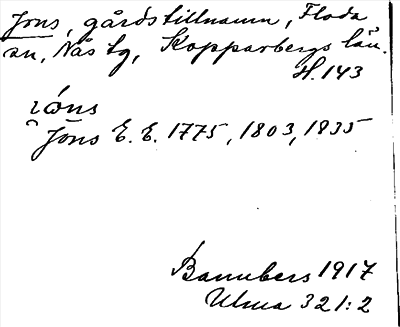 Jons, gårdstillnamn, Floda
sn, Nås tg, Kopparbergs län.
H. 143
ıóns
Jons E. E. 1775, 1803, 1835
Bannbers 1917
Ulma 321:2